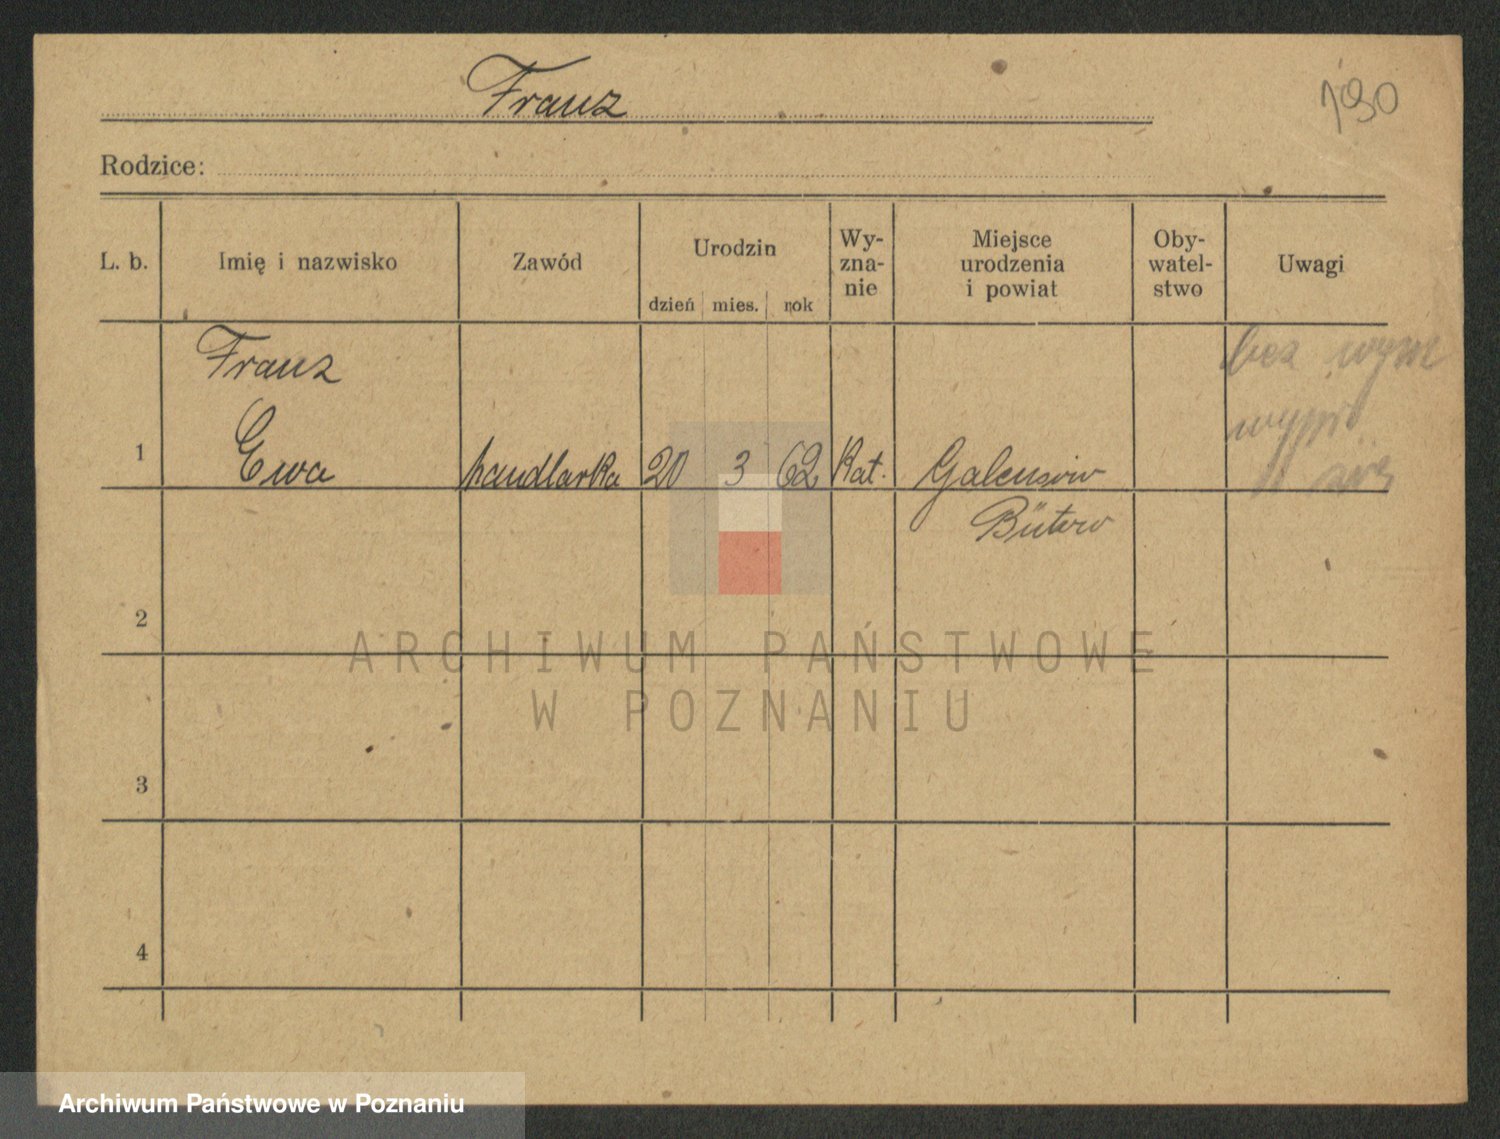 Franz
190
Rodzice:
L. b.
Imię i nazwisko
Zawód
Urodzin
dzień mies. rok
Wy-
zna-
nie
Miejsce
urodzenia
i powiat
Oby-
watel-
stwo
Uwagi
Franz
1 Ewa handlarka 20 3 62 Kat.
Bütow
bez wym
2
3
4
ARCHIWUM PAŃSTWOWE
W POZNANIU
Archiwum Państwowe w Poznaniu